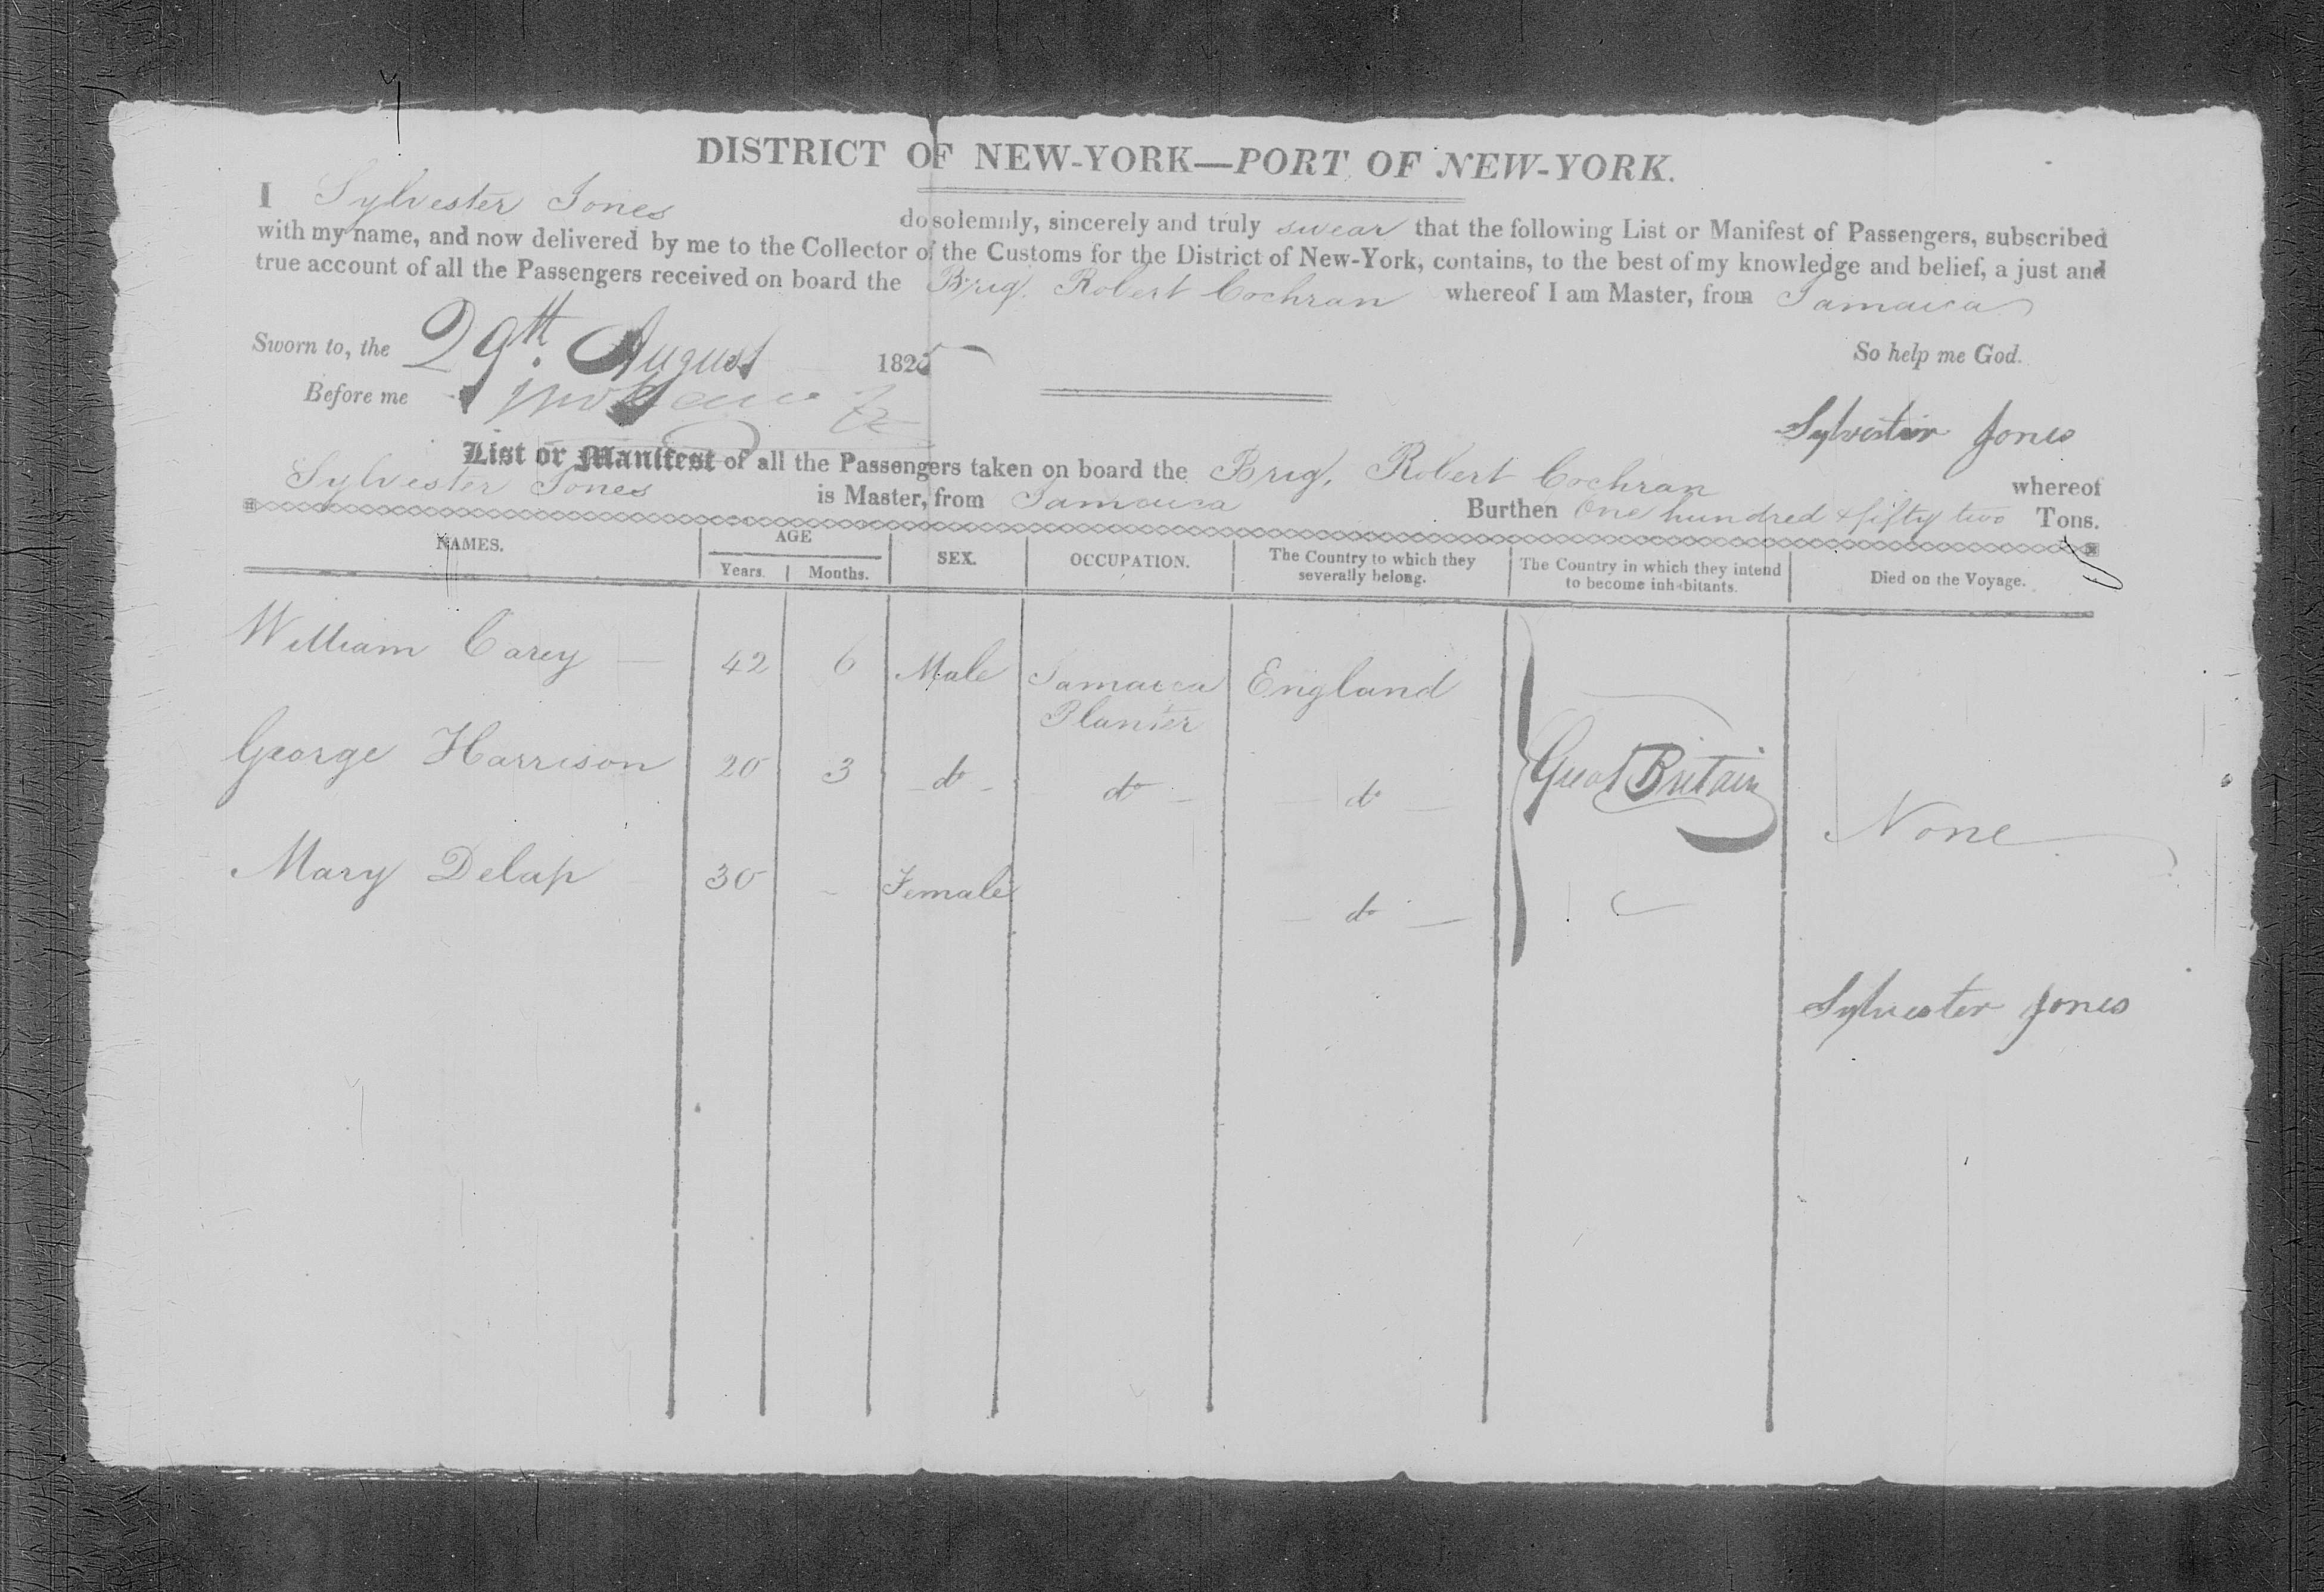 DISTRICT OF NEW-YORK—PORT OF NEW-YORK.
I Sylvester Jones do solemnly, sincerely and truly swear that the following List or Manifest of Passengers, subscribed
with my name, and now delivered by me to the Collector of the Customs for the District of New-York, contains, to the best of my knowledge and belief, a just and
true account of all the Passengers received on board the Brig. Robert Cochran whereof I am Master, from Jamaica
So help me God.
Sworn to, the 29th. August 1825
Before me
Sylvester Jones
List or Manifest of all the Passengers taken on board the Brig, Robert Cochran whereof
Sylvester Jones is Master, from Jamaica Burthen One hundred & fifty two Tons.
NAMES. AGE Years. Months. SEX. OCCUPATION. The Country to which they severally belong. The Country in which they intend to become inhabitants. Died on the Voyage.
William Carey — 42 6 Male Jamaica Planter England
George Harrison 20 3 - do - do - — do —
Great Britain
None
Mary Delap 30 - Female — do —
Sylvester Jones